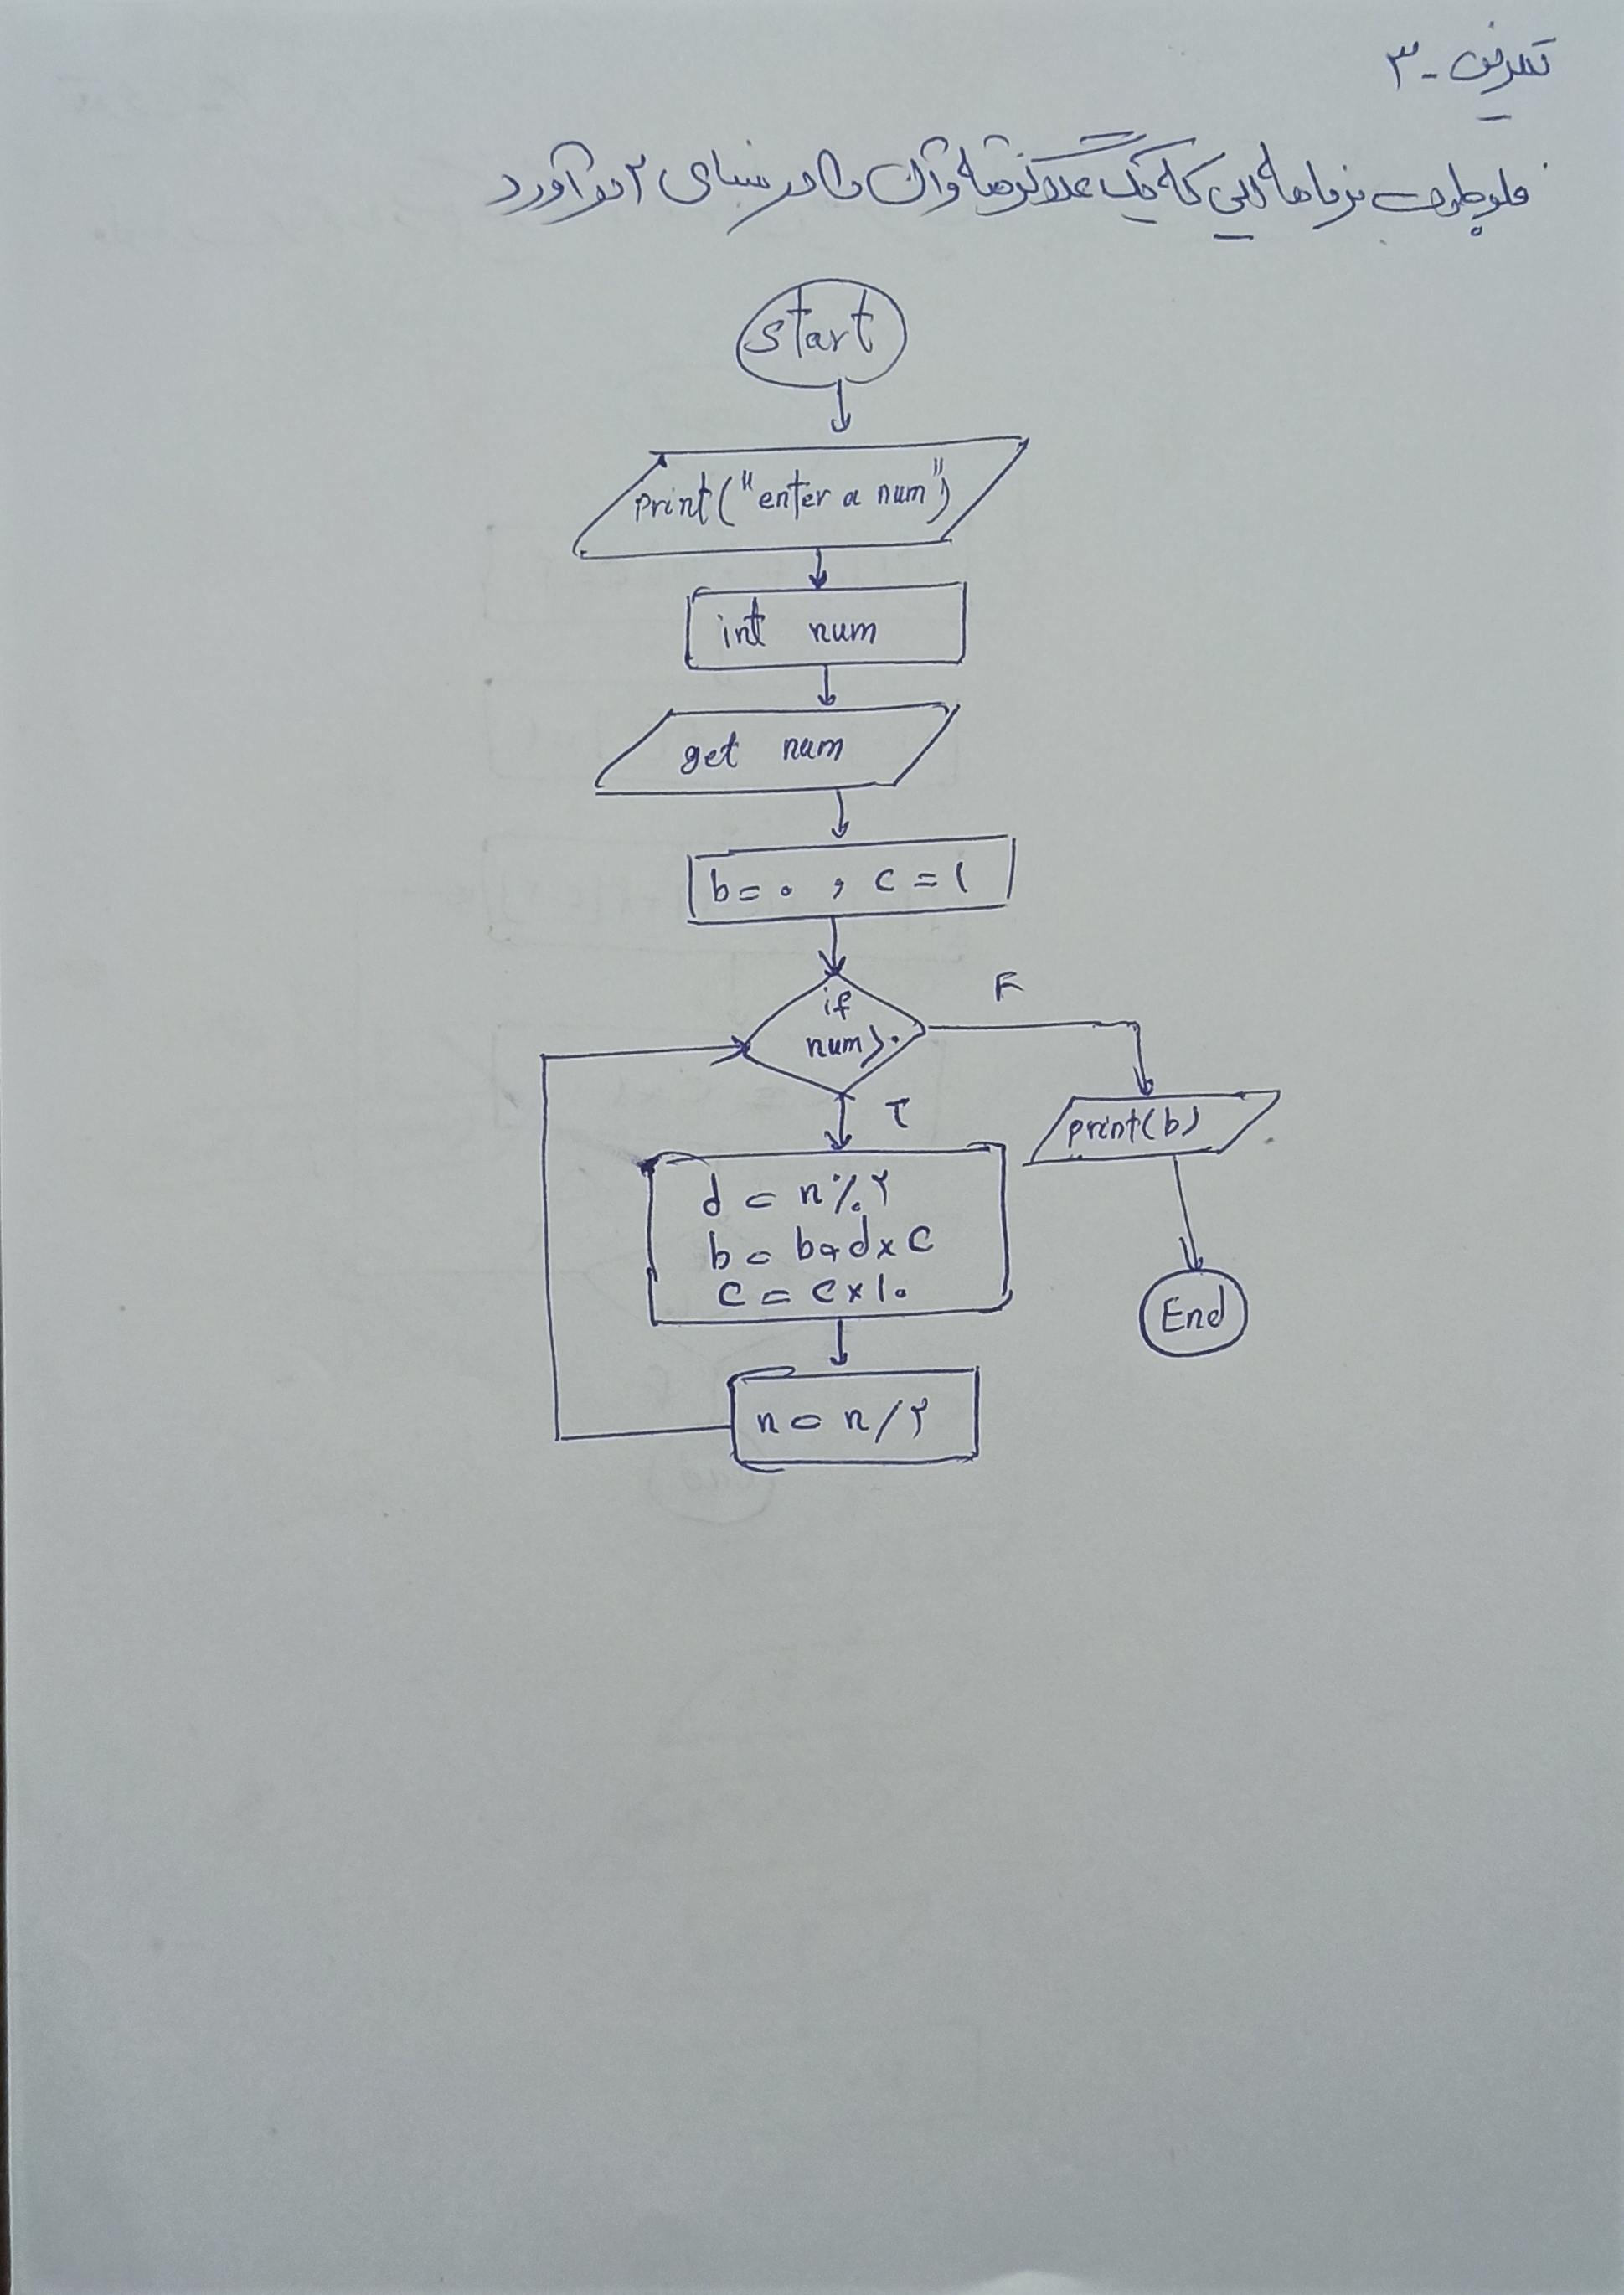 تمرین - ۳
فلوچارت برنامه ایی که یک عدد گرفته و آن را در مبنای ۲ در آورد
start
print("enter a num")
int num
get num
b = ۰ , c = ۱
if
num > ۰
F
T
print(b)
d = n % ۲
b = b + d × c
c = c × ۱۰
End
n = n / ۲